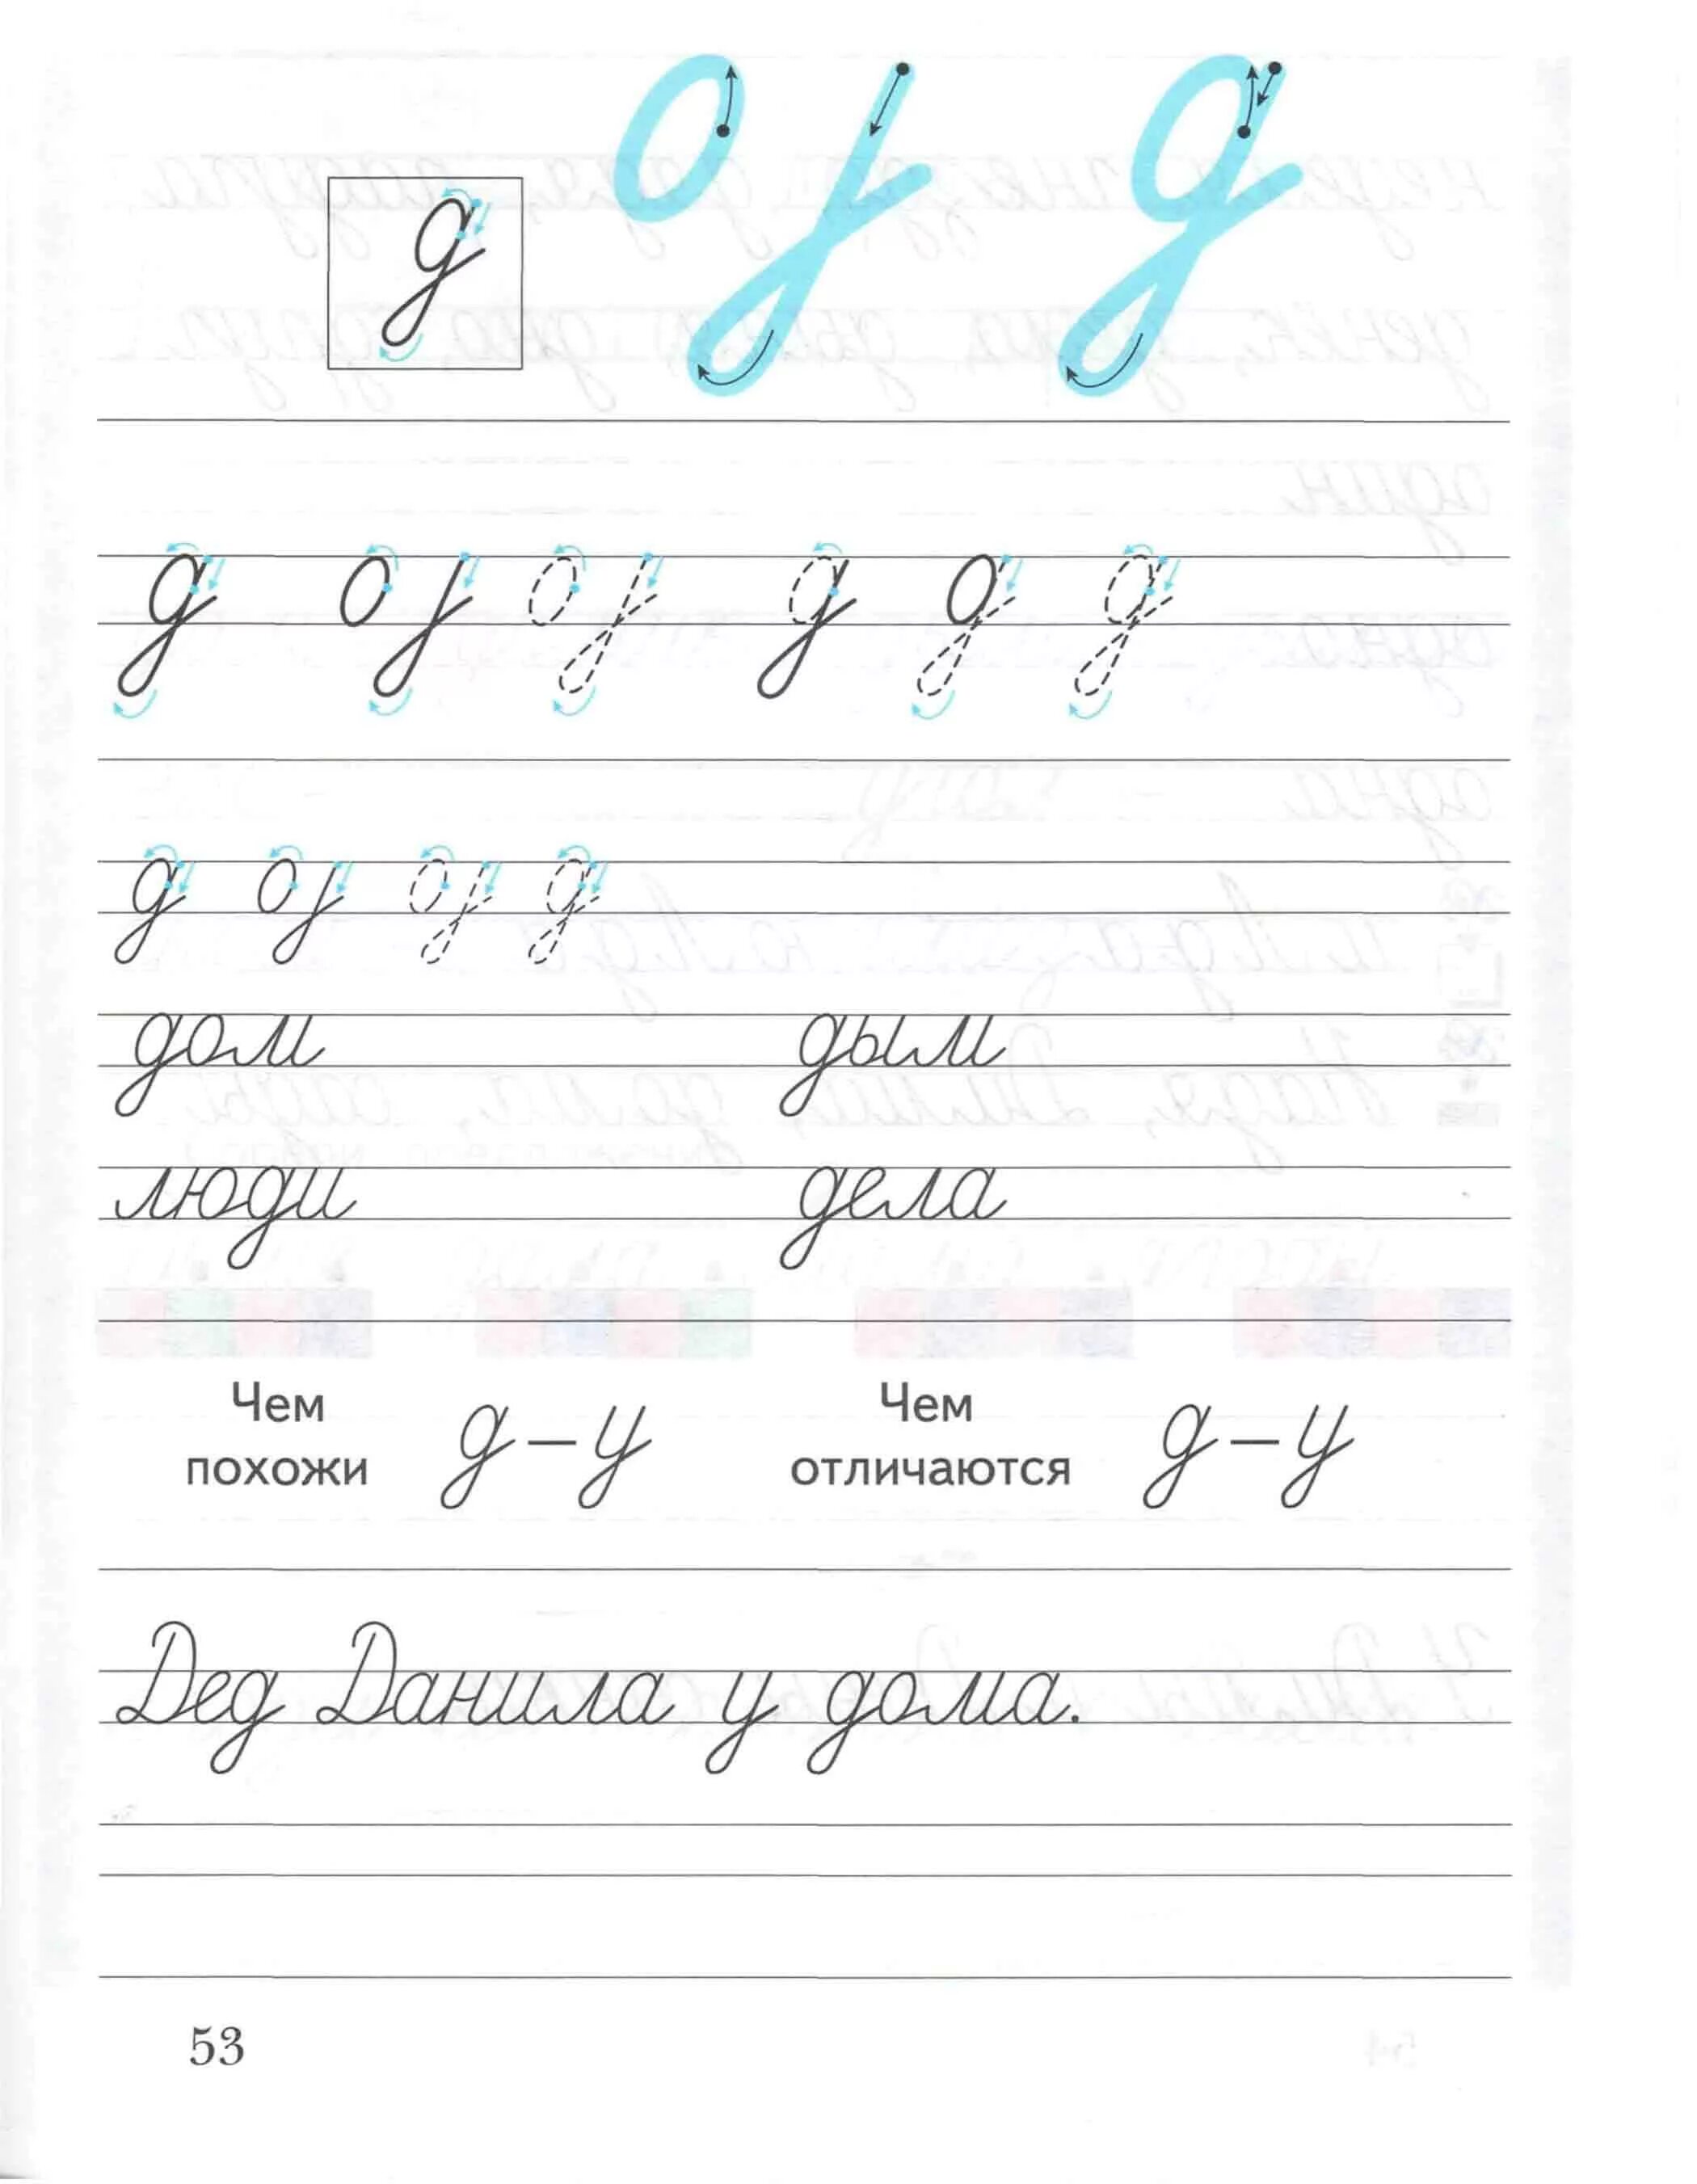 д
д д д д д д
д д д д
дом дым
люди дела
Чем похожи д – у Чем отличаются д – у
Дед Данила у дома.
53